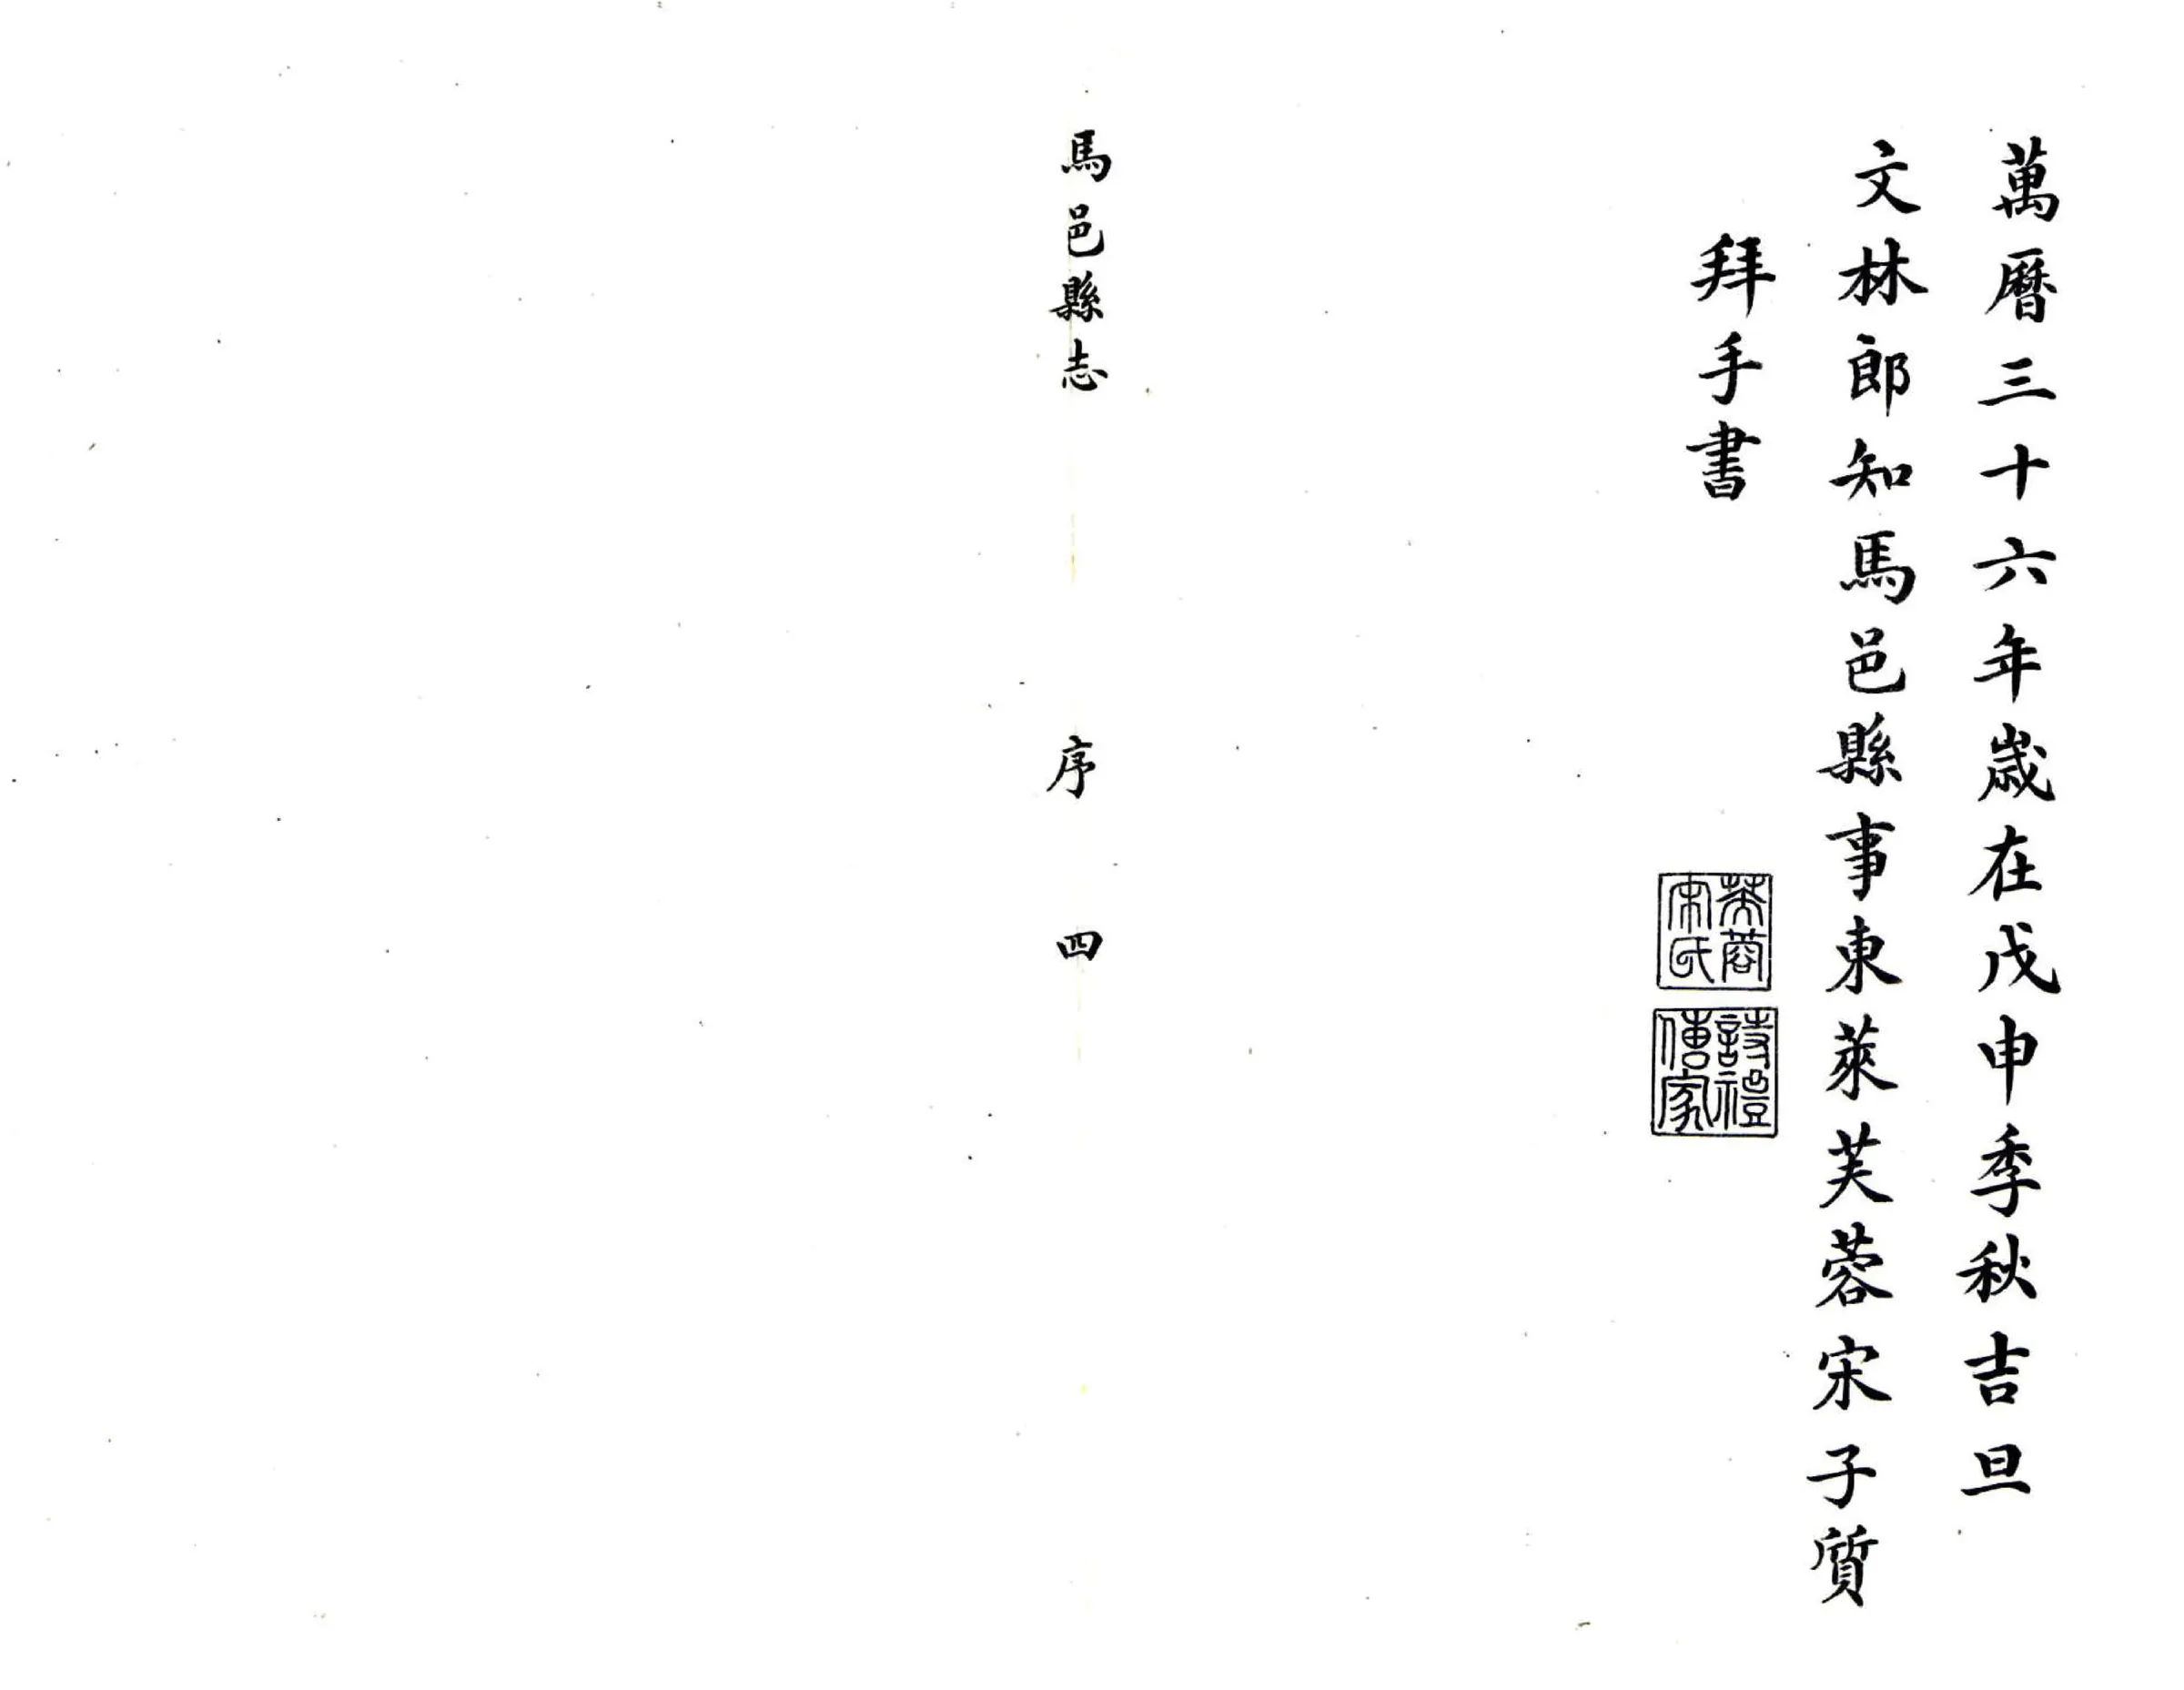 萬曆三十六年歲在戊申季秋吉旦
文林郎知馬邑縣事東萊芙蓉宋子質
拜手書
芙蓉
宋氏
詩禮
傳家
馬邑縣志
序
四